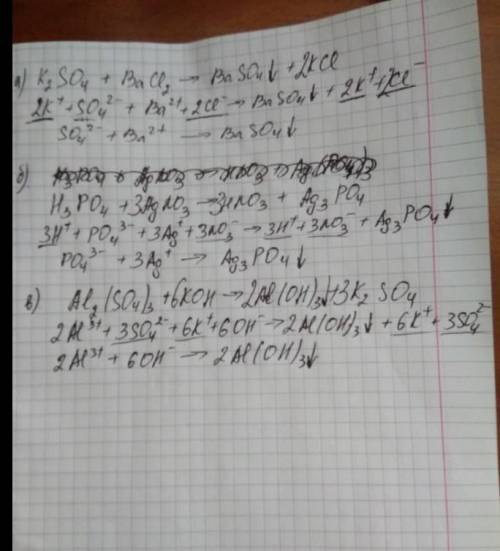 а) K₂SO₄ + BaCl₂ → BaSO₄↓ + 2KCl
2K⁺ + SO₄²⁻ + Ba²⁺ + 2Cl⁻ → BaSO₄↓ + 2K⁺ + 2Cl⁻
SO₄²⁻ + Ba²⁺ → BaSO₄↓
б)
H₃PO₄ + 3AgNO₃ → 3HNO₃ + Ag₃PO₄
3H⁺ + PO₄³⁻ + 3Ag⁺ + 3NO₃⁻ → 3H⁺ + 3NO₃⁻ + Ag₃PO₄↓
PO₄³⁻ + 3Ag⁺ → Ag₃PO₄↓
в) Al₂(SO₄)₃ + 6KOH → 2Al(OH)₃↓ + 3K₂SO₄
2Al³⁺ + 3SO₄²⁻ + 6K⁺ + 6OH⁻ → 2Al(OH)₃↓ + 6K⁺ + 3SO₄²⁻
2Al³⁺ + 6OH⁻ → 2Al(OH)₃↓